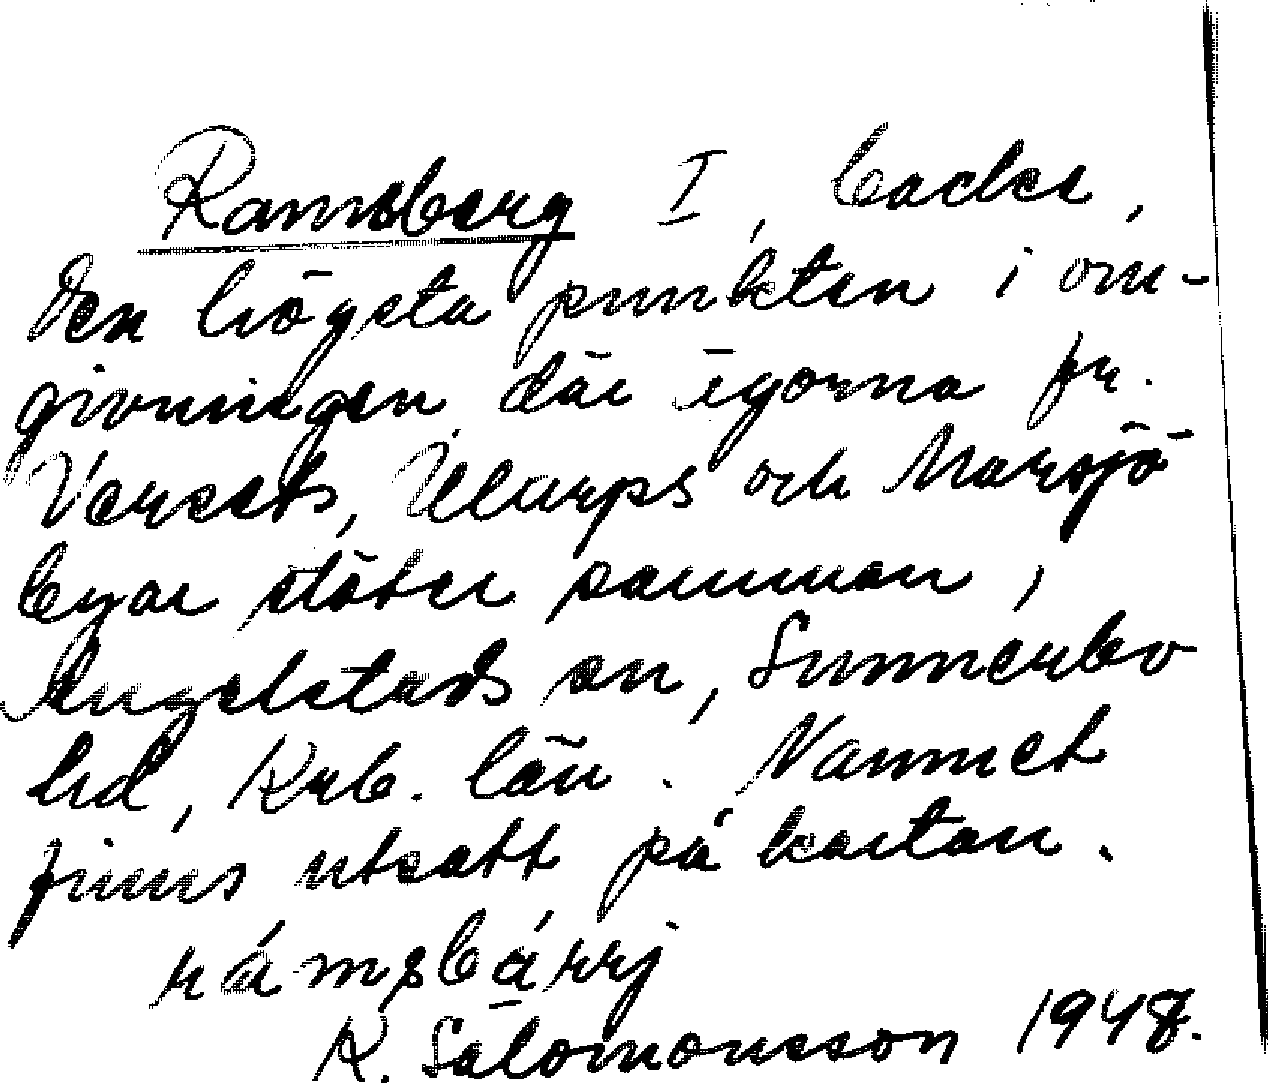 Ramsberg I, backe,
Den högsta punkten i om-
givningen där ägorna fr.
Versets, Ularps och Marsjö
byar stöter samman,
Angelstads sn, Sunnerbo
hd, Krb. län. Namnet
finns utsatt på kartan.
rámsbárrj
K. Salomonsson 1948.